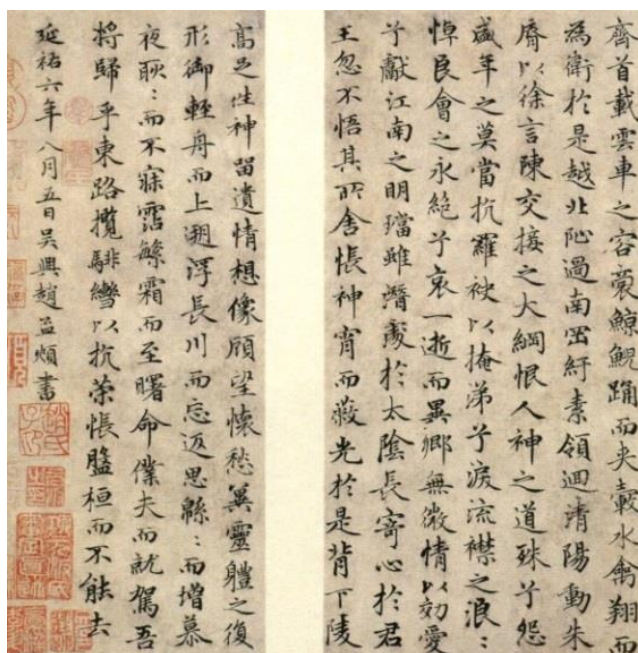 齊首載雲車之容裔鯨鯢踊而夾轂水禽翔而
為衛於是越北沚過南岡紆素領迴清陽動朱
脣以徐言陳交接之大綱恨人神之道殊兮怨
盛年之莫當抗羅袂以掩涕兮淚流襟之浪〻
悼良會之永絕兮哀一逝而異鄉無微情以効愛
兮獻江南之明璫雖潛處於太陰長寄心於君
王忽不悟其所舍悵神宵而蔽光於是背下陵
高足往神留遺情想像顧望懷愁冀靈體之復
形御輕舟而上遡浮長川而忘返思緜〻而增慕
夜耿〻而不寐霑繁霜而至曙命僕夫而就駕吾
將歸乎東路攬騑轡以抗策悵盤桓而不能去
延祐六年八月五日吳興趙孟頫書
趙氏子昂